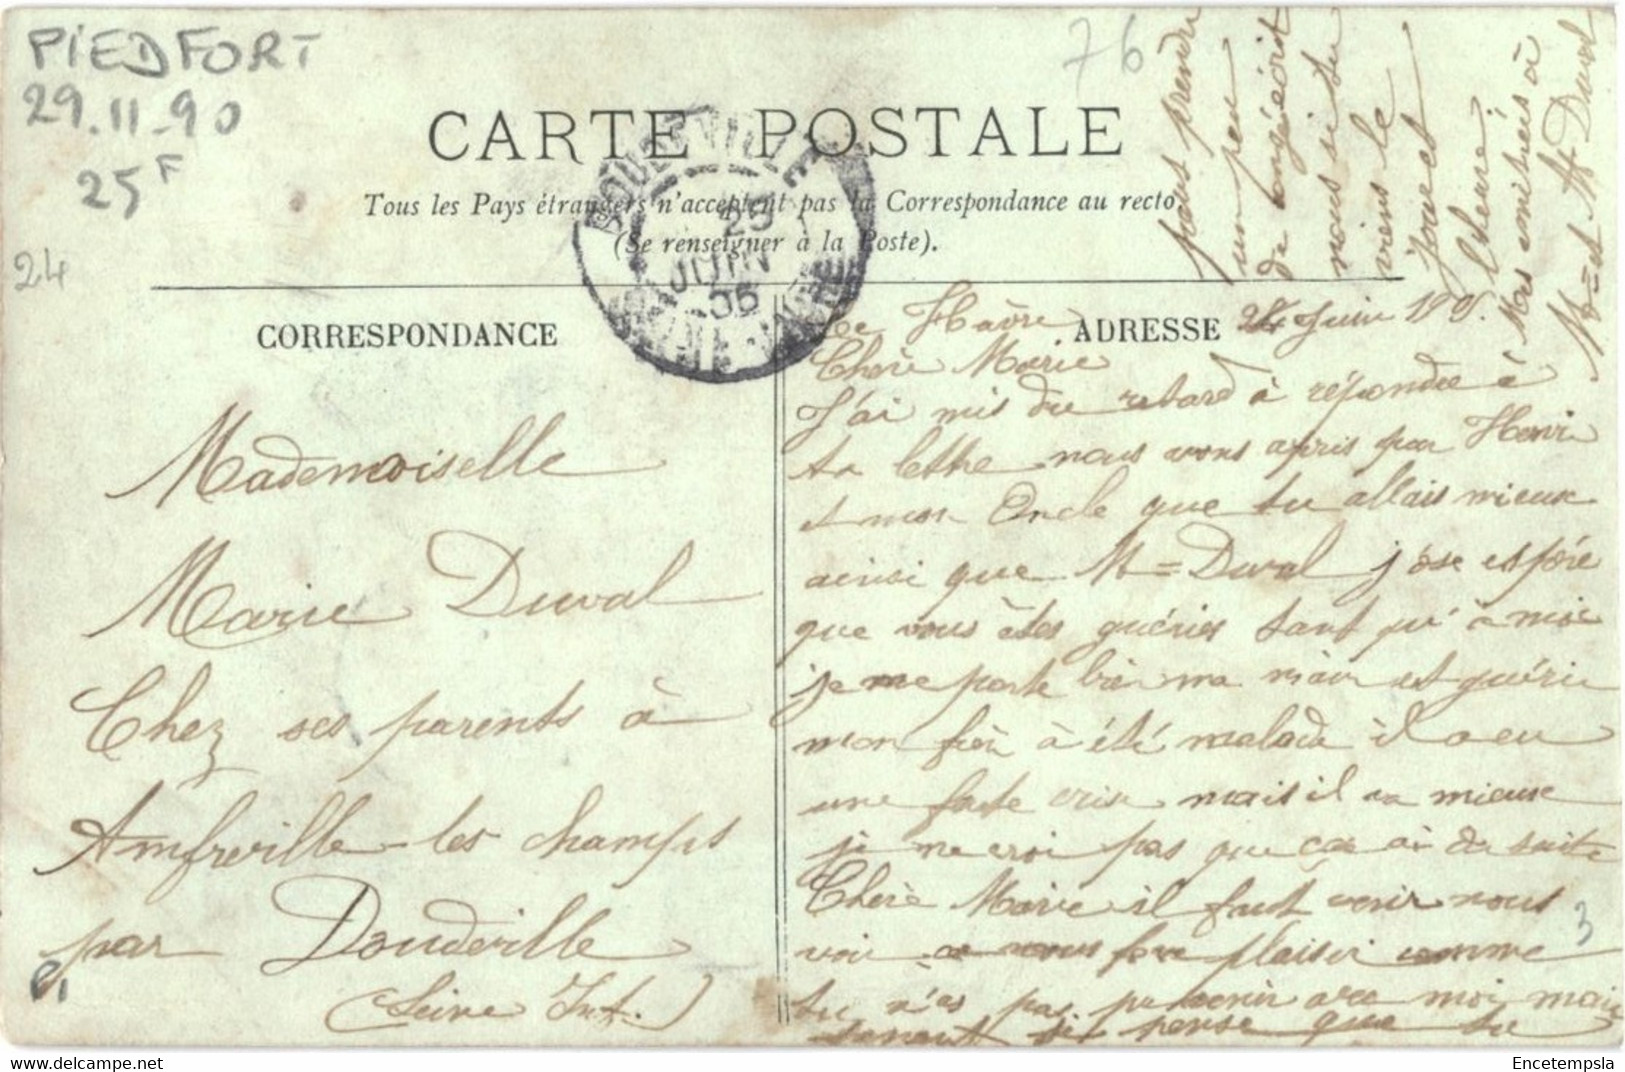 PIEDFORT
29.11-90
25F
24
76
CARTE POSTALE
Tous les Pays étrangers n'acceptent pas la Correspondance au recto.
(Se renseigner à la Poste).
DOUDEVILLE
25
JUIN
05
CORRESPONDANCE
ADRESSE
Mademoiselle
Marie Duval
Chez ses parents à
Amfreville-les champs
par Doudeville
(Seine Inf.)
Le Havre 24 Juin 190
Chère Marie
J'ai mis du retard à répondre à
ta lettre nous vons appris par Henri
et mon Oncle que tu allais mieux
ainsi que M = Duval j'ose espére
que vous êtes guéries tant qu'à moi
je me porte bien ma main est guérie
mon frère à été malade il a eu
une forte crise mais il va mieux
je ne croi pas que ça ai de suite
Chère Marie il faut venir nous
voir ça nous fera plaisir comme
tu n'as pas pu venir avec moi mais
je pense que tu
pous prendre
un peu
de congé écrit
nous si tu
viens le
Mes amitiés à
M = et Mr Duval
3
DELCAMPE.NET
Encetempsla